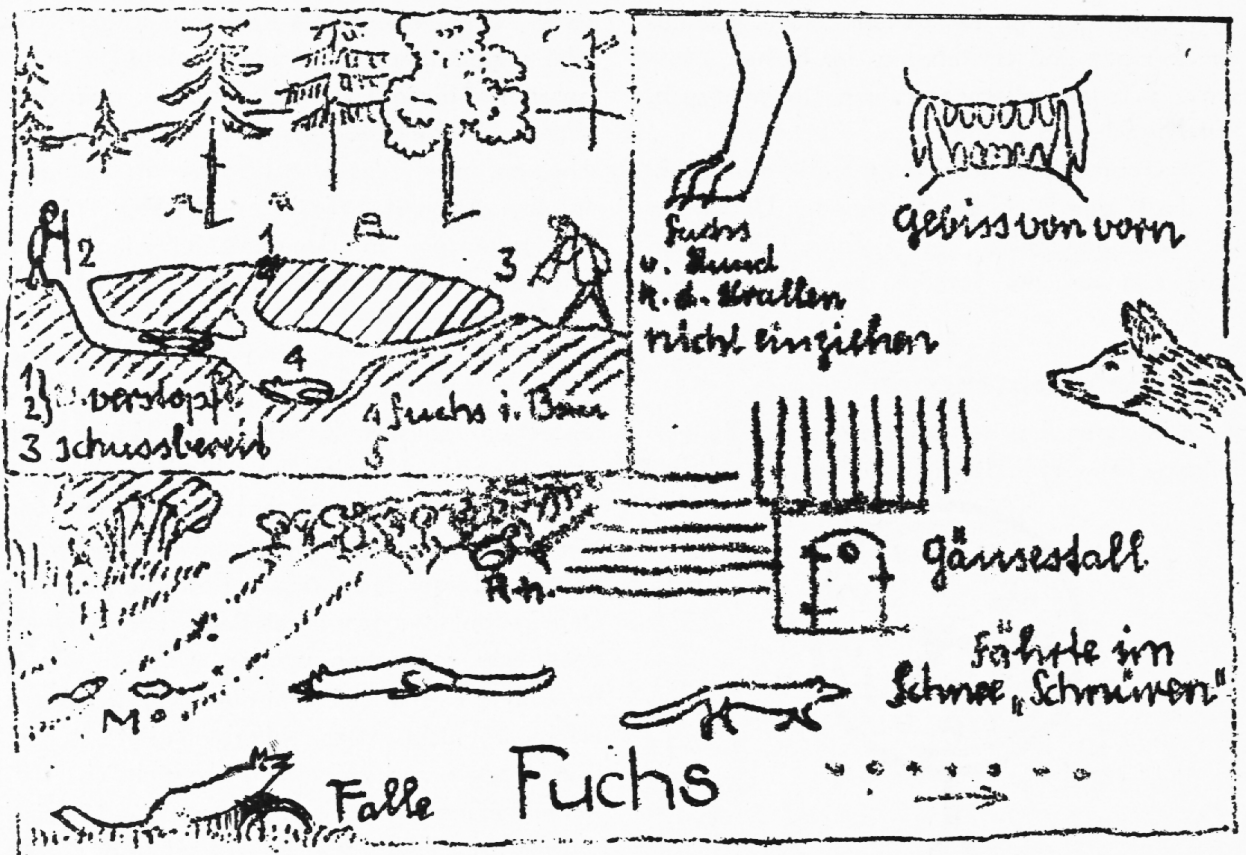 1
2
3
4
1}
2} verstopft
3 schussbereit
4 Fuchs i. Bau
5
Fuchs
u. Hund
k. d. Krallen
nicht einziehen
Gebiss von vorn
Gänsestall
R.h.
M
Fährte im
Schnee „Schnüren"
Falle
Fuchs